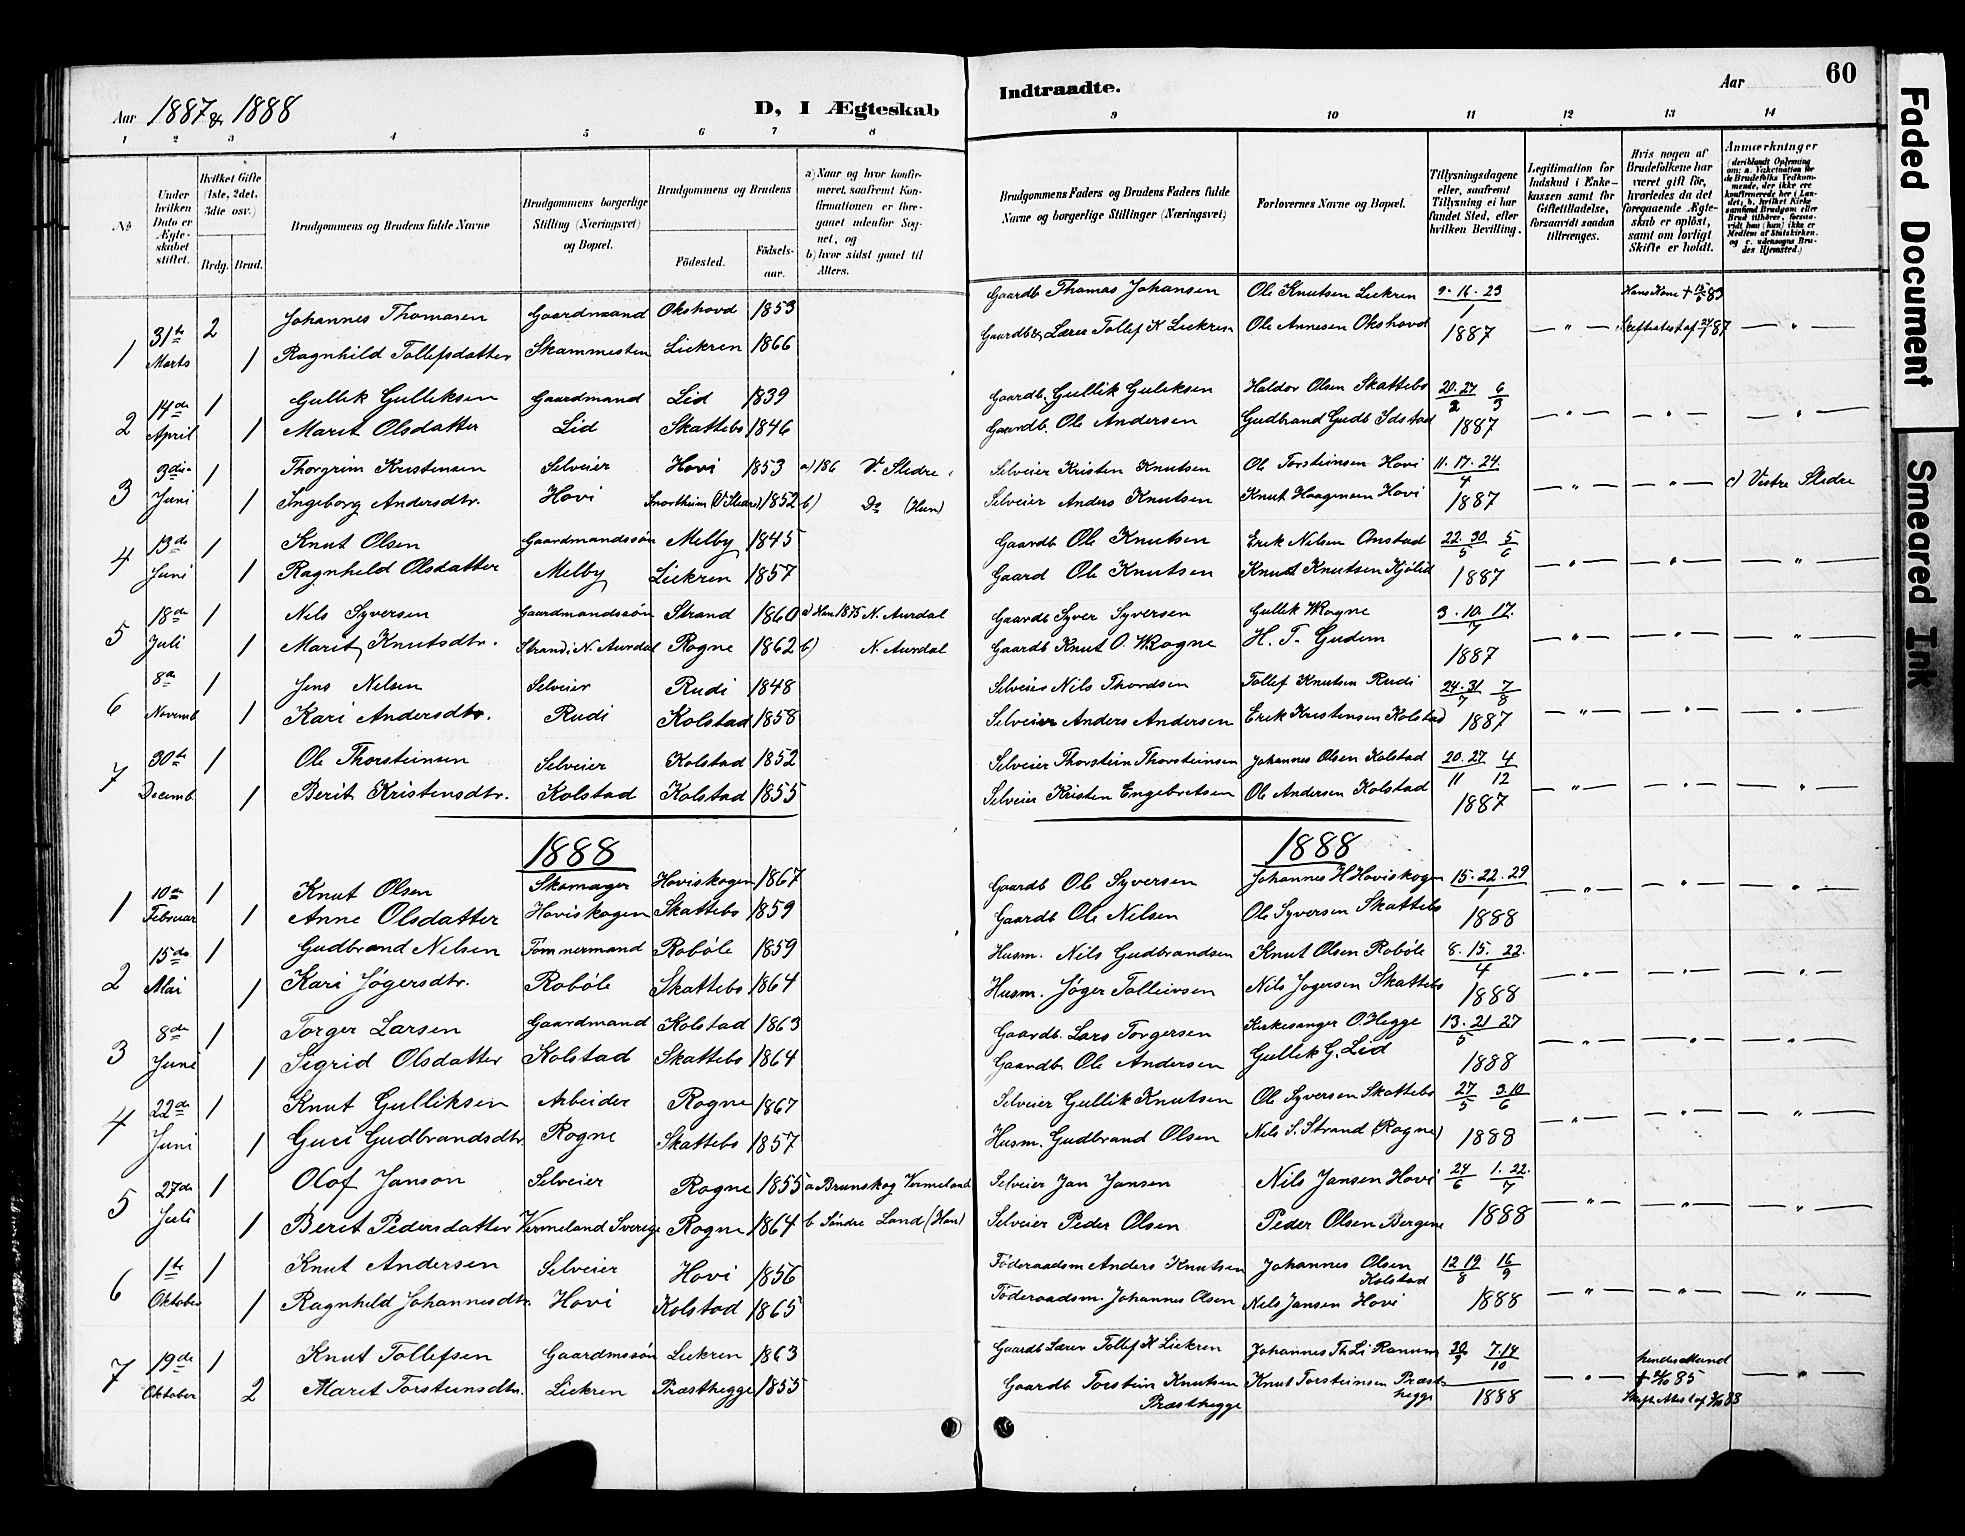 Aar 1887 & 1888
D, I Ægteskab
Indtraadte.
Aar
60
1 2 3 4 5 6 7 8 9 10 11 12 13 14
No
Under hvilken Dato er Ægteskabet stiftet.
Hvilket Gifte (1ste, 2det, 3die osv.)
Brdg. Brud.
Brudgommens og Brudens fulde Navne
Brudgommens borgerlige Stilling (Næringsvei) og Bopæl.
Brudgommens og Brudens
Födested. Födselsaar.
a) Naar og hvor konfirmeret, saafremt Konfirmationen er foregaaet udenfor Sognet, og
b) hvor sidst gaaet til Alters.
Brudgommens Faders og Brudens Faders fulde Navne og borgerlige Stillinger (Næringsvei)
Forlovernes Navne og Bopæl.
Tillysningsdagene eller, saafremt Tillysning ei har fundet Sted, efter hvilken Bevilling.
Legitimation for Indskud i Enkekassen samt for Giftetilladelse, forsaavidt saadan tiltrænges.
Hvis nogen af Brudefolkene har været gift för, hvorledes da det foregaaende Ægteskab er oplöst, samt om lovligt Skifte er holdt.
Anmærkninger
1 31te Marts 2 Johannes Thomasen Gaardmand Okshovd 1853 Gaardb Thomas Johansen Ole Knutsen Liekren 9. 16. 23/1 Hans Kone +
1 Ragnhild Tollefsdatter Skammesten Liekren 1866 Gaardb. Lærer Tollef K Liekren Ole Annesen Okshovd 1887 — " —
2 14de April 1 Gullik Gulliksen Gaardmand Lid 1839 Gaardb. Gullik Guliksen Haldor Olsen Skattebo 20. 27/2 6/3
1 Marit Olsdatter Lid Skattebo 1846 Gaardb. Ole Andersen Gudbrand Gudb Idstad 1887 — " —
3 3die Juni 1 Thorgrim Kristensen Selveier Hovi 1853 a) 186 V. Slidre Selveier Kristen Knutsen Ole Torsteinsen Hovi 11. 17. 24./4
1 Ingeborg Andersdtr. Hovi (V Slidre) 1852 b) Do (Hun) Selveier Anders Knutsen Knut Haagensen Hovi 1887 — " — c) Vestre Slidre
4 13de Juni 1 Knut Olsen Gaardmandssön Melby 1845 Gaardb Ole Knutsen Erik Nilsen Onstad 22. 30/5 5/6
1 Ragnhild Olsdatter Melby Liekren 1857 Gaard Ole Knutsen Knut Knutsen Kjölid 1887 — " —
5 18de Juli 1 Nils Syversen Gaardmandssön Strand 1860 a) Han 1875 N. Aurdal Gaardb Syver Syversen Gullik Rogne 3. 10. 17./7
1 Marit Knutsdtr. Strand i N. Aurdal Rogne 1862 b) N. Aurdal Gaardb Knut O. Rogne H. T. Gudem 1887 — " —
6 8de Novemb 1 Jens Nilsen Selveier Rudi 1848 Selveier Nils Thordsen Tollef Knutsen Rudi 24. 31/7 7/8
1 Kari Andersdtr. Rudi Kolstad 1858 Selveier Anders Andersen Erik Kristensen Kolstad 1887 — " —
7 30te Decemb 1 Ole Thorsteinsen Selveier Kolstad 1852 Selveier Thorstein Thorsteinsen Johannes Olsen Kolstad 20. 27/11 4/12
1 Berit Kristensdtr. Kolstad Kolstad 1855 Selveier Kristen Engebretsen Ole Andersen Kolstad 1887 — " —
1888 1888
1 10de Februar 1 Knut Olsen Skomager Hoviskogen 1867 Gaardb Ole Syversen Johannes H Hoviskogen 15. 22. 29/1
1 Anne Olsdatter Hoviskogen Skattebo 1859 Gaardb Ole Nilsen Ole Syversen Skattebo 1888 — " —
2 15de Mai 1 Gudbrand Nilsen Tömmermand Roböle 1859 Husm. Nils Gudbrandsen Knut Olsen Roböle 8. 15. 22./4
1 Kari Jögersdtr. Roböle Skattebo 1864 Husm. Jöger Tolleivsen Nils Jogersen Skattebo 1888 — " —
3 8de Juni 1 Torger Larsen Gaardmand Kolstad 1863 Gaardb. Lars Torgersen Kirkesanger O. Hegge 13. 21 27/5
1 Sigrid Olsdatter Kolstad Skattebo 1864 Gaardb. Ole Andersen Gullik G. Lid 1888 — " —
4 22de Juni 1 Knut Gulliksen Arbeider Rogne 1867 Selveier Gullik Knutsen Ole Syversen Skattebo 27/5 3.10/6
1 Guri Gudbrandsdtr Rogne Skattebo 1857 Husm. Gudbrand Olsen Nils S. Strand (Rogne) 1888 — " —
5 27de Juli 1 Olof Janson Selveier Rogne 1855 a Brunskog Vermeland Selveier Jan Jansen Nils Jansen Hovi 24/6 1. 22./7
1 Berit Pedersdatter Vermeland Sverige Rogne 1864 b Söndre Land (Han) Selveier Peder Olsen Peder Olsen Bergene 1888 — " —
6 1te Oktober 1 Knut Andersen Selveier Hovi 1856 Föderaadsm Anders Knutsen Johannes Olsen Kolstad 12 19/8 16/9
1 Ragnhild Johannesdtr. Hovi Kolstad 1865 Föderaadsm. Johannes Olsen Nils Jansen Hovi 1888 — " —
7 19de Oktober 1 Knut Tollefsen Gaardmssön Liekren 1863 Gaardb Lærer Tollef K Liekren Johannes Th. Li Ranum 30/9 7.14/10 hendes Mand
2 Marit Torsteinsdtr. Liekren Præsthegge 1855 Gaardb Torstein Knutsen Præsthegge Knut Torsteinsen Præsthegge 1888 — " —
Faded Document
Smeared Ink